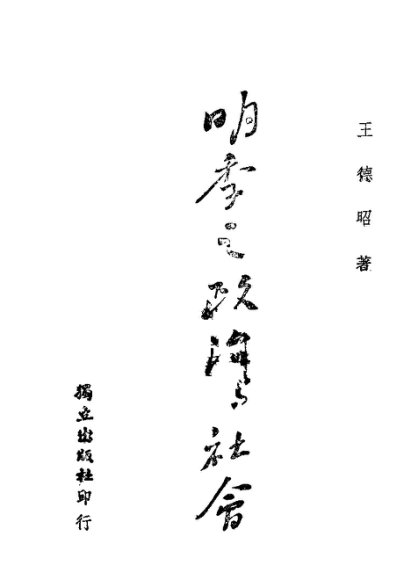 王德昭著
明季之政治與社會
獨立出版社印行